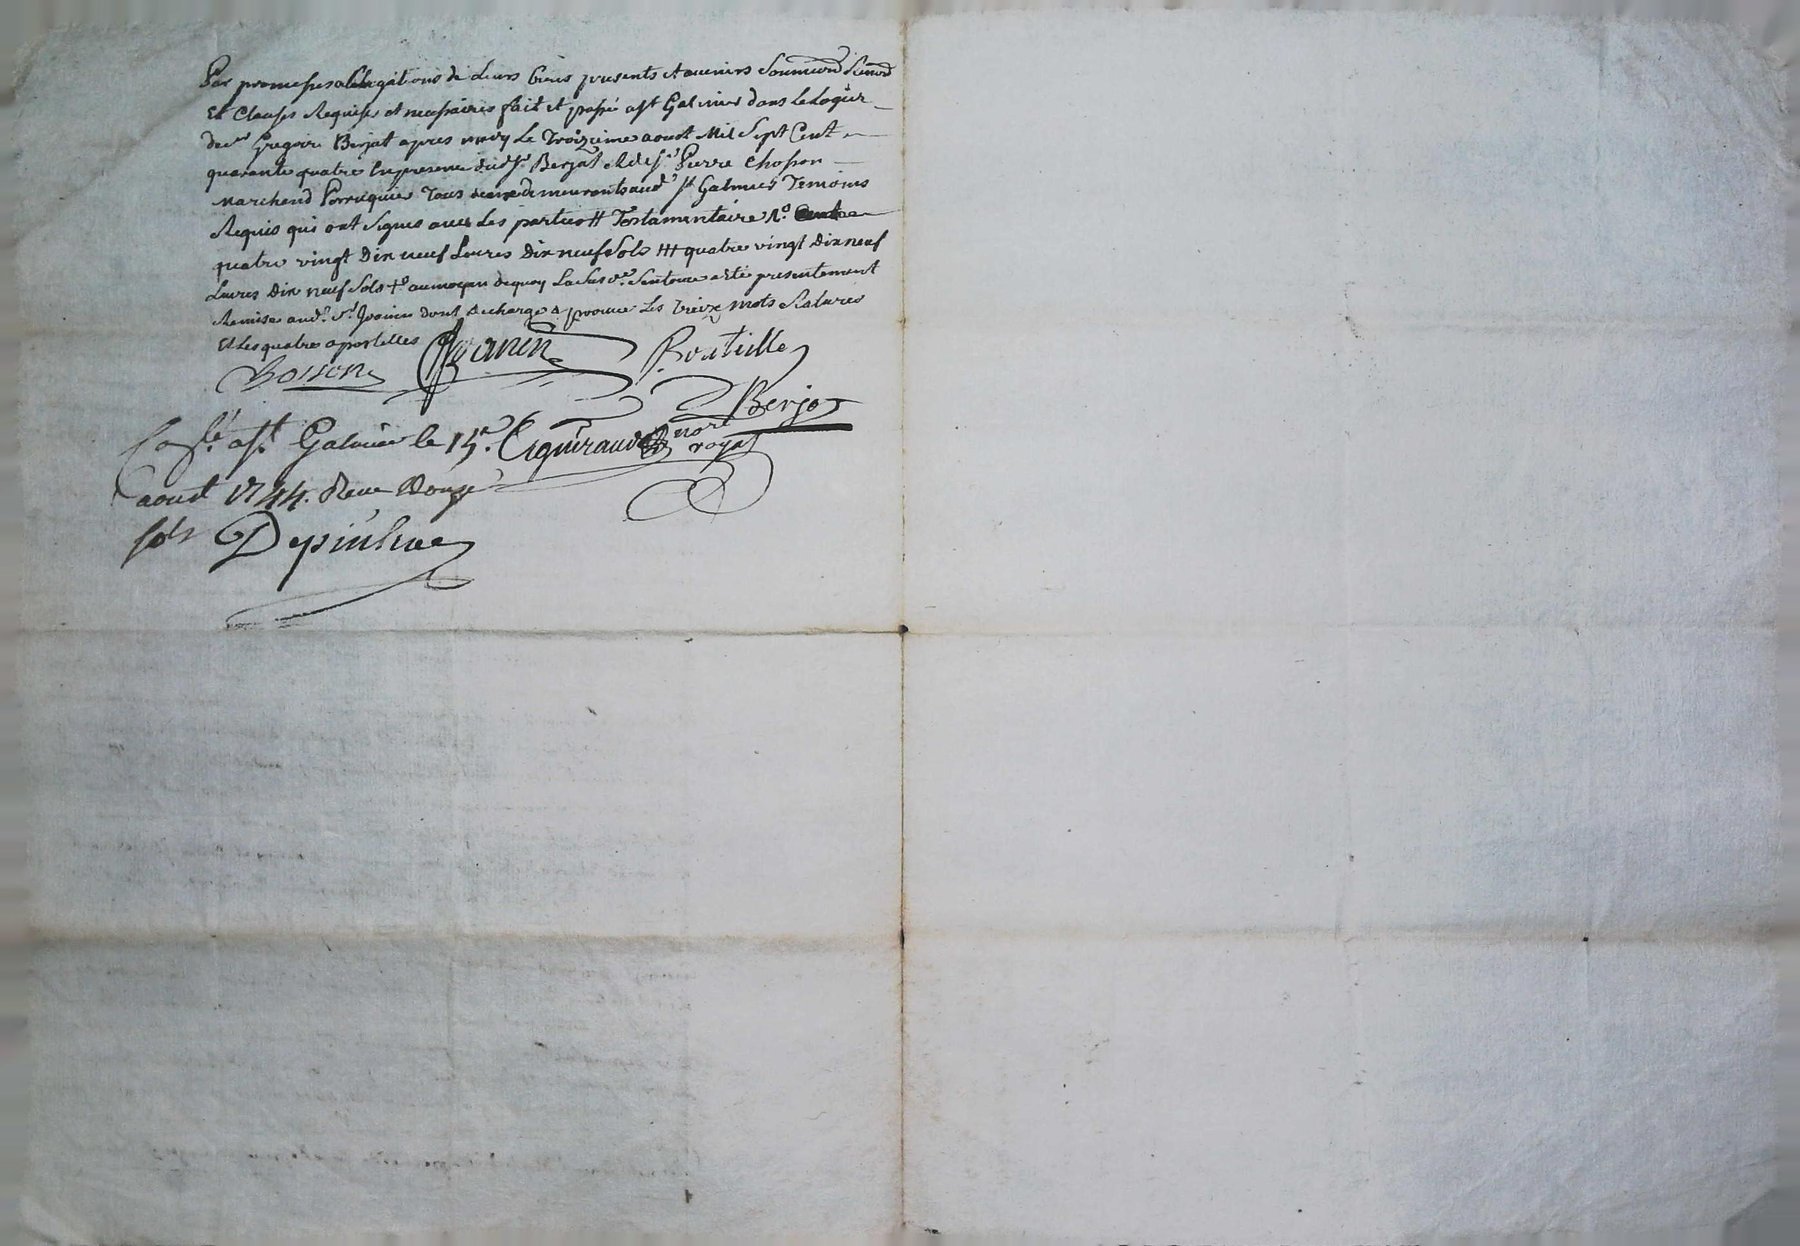 Par promesses obligations de Leurs biens presents et avenirs
Et Clauses Requises et necessaires fait et passé a St Galmier dans Le Logis
de sr Gregoire Berjat apres midy Le Troizieme aoust Mil Sept Cent
quarante quatre En presence dud sr Berjat et de sr Pierre Chosson
Marchand Perruquier Tous deux demeurants aud st Galmier Temoins
Requis qui ont Signes avec Les parties # Testamentaire
quatre vingt Dix neuf Livres Dix neuf Sols ## quatre vingt Dix neuf
Livres Dix neuf Sols + au moyen dequoy La Sus de Sentence a eté presentement
Remise aud. sr. Jvanin dont decharge approuvé Les treize mots
Et Les quatre apostilles
Jvanin
Bouteille
Berjat
not
royal
a st. Galmier le 15e.
aoust 1744. Receu Douze
sols